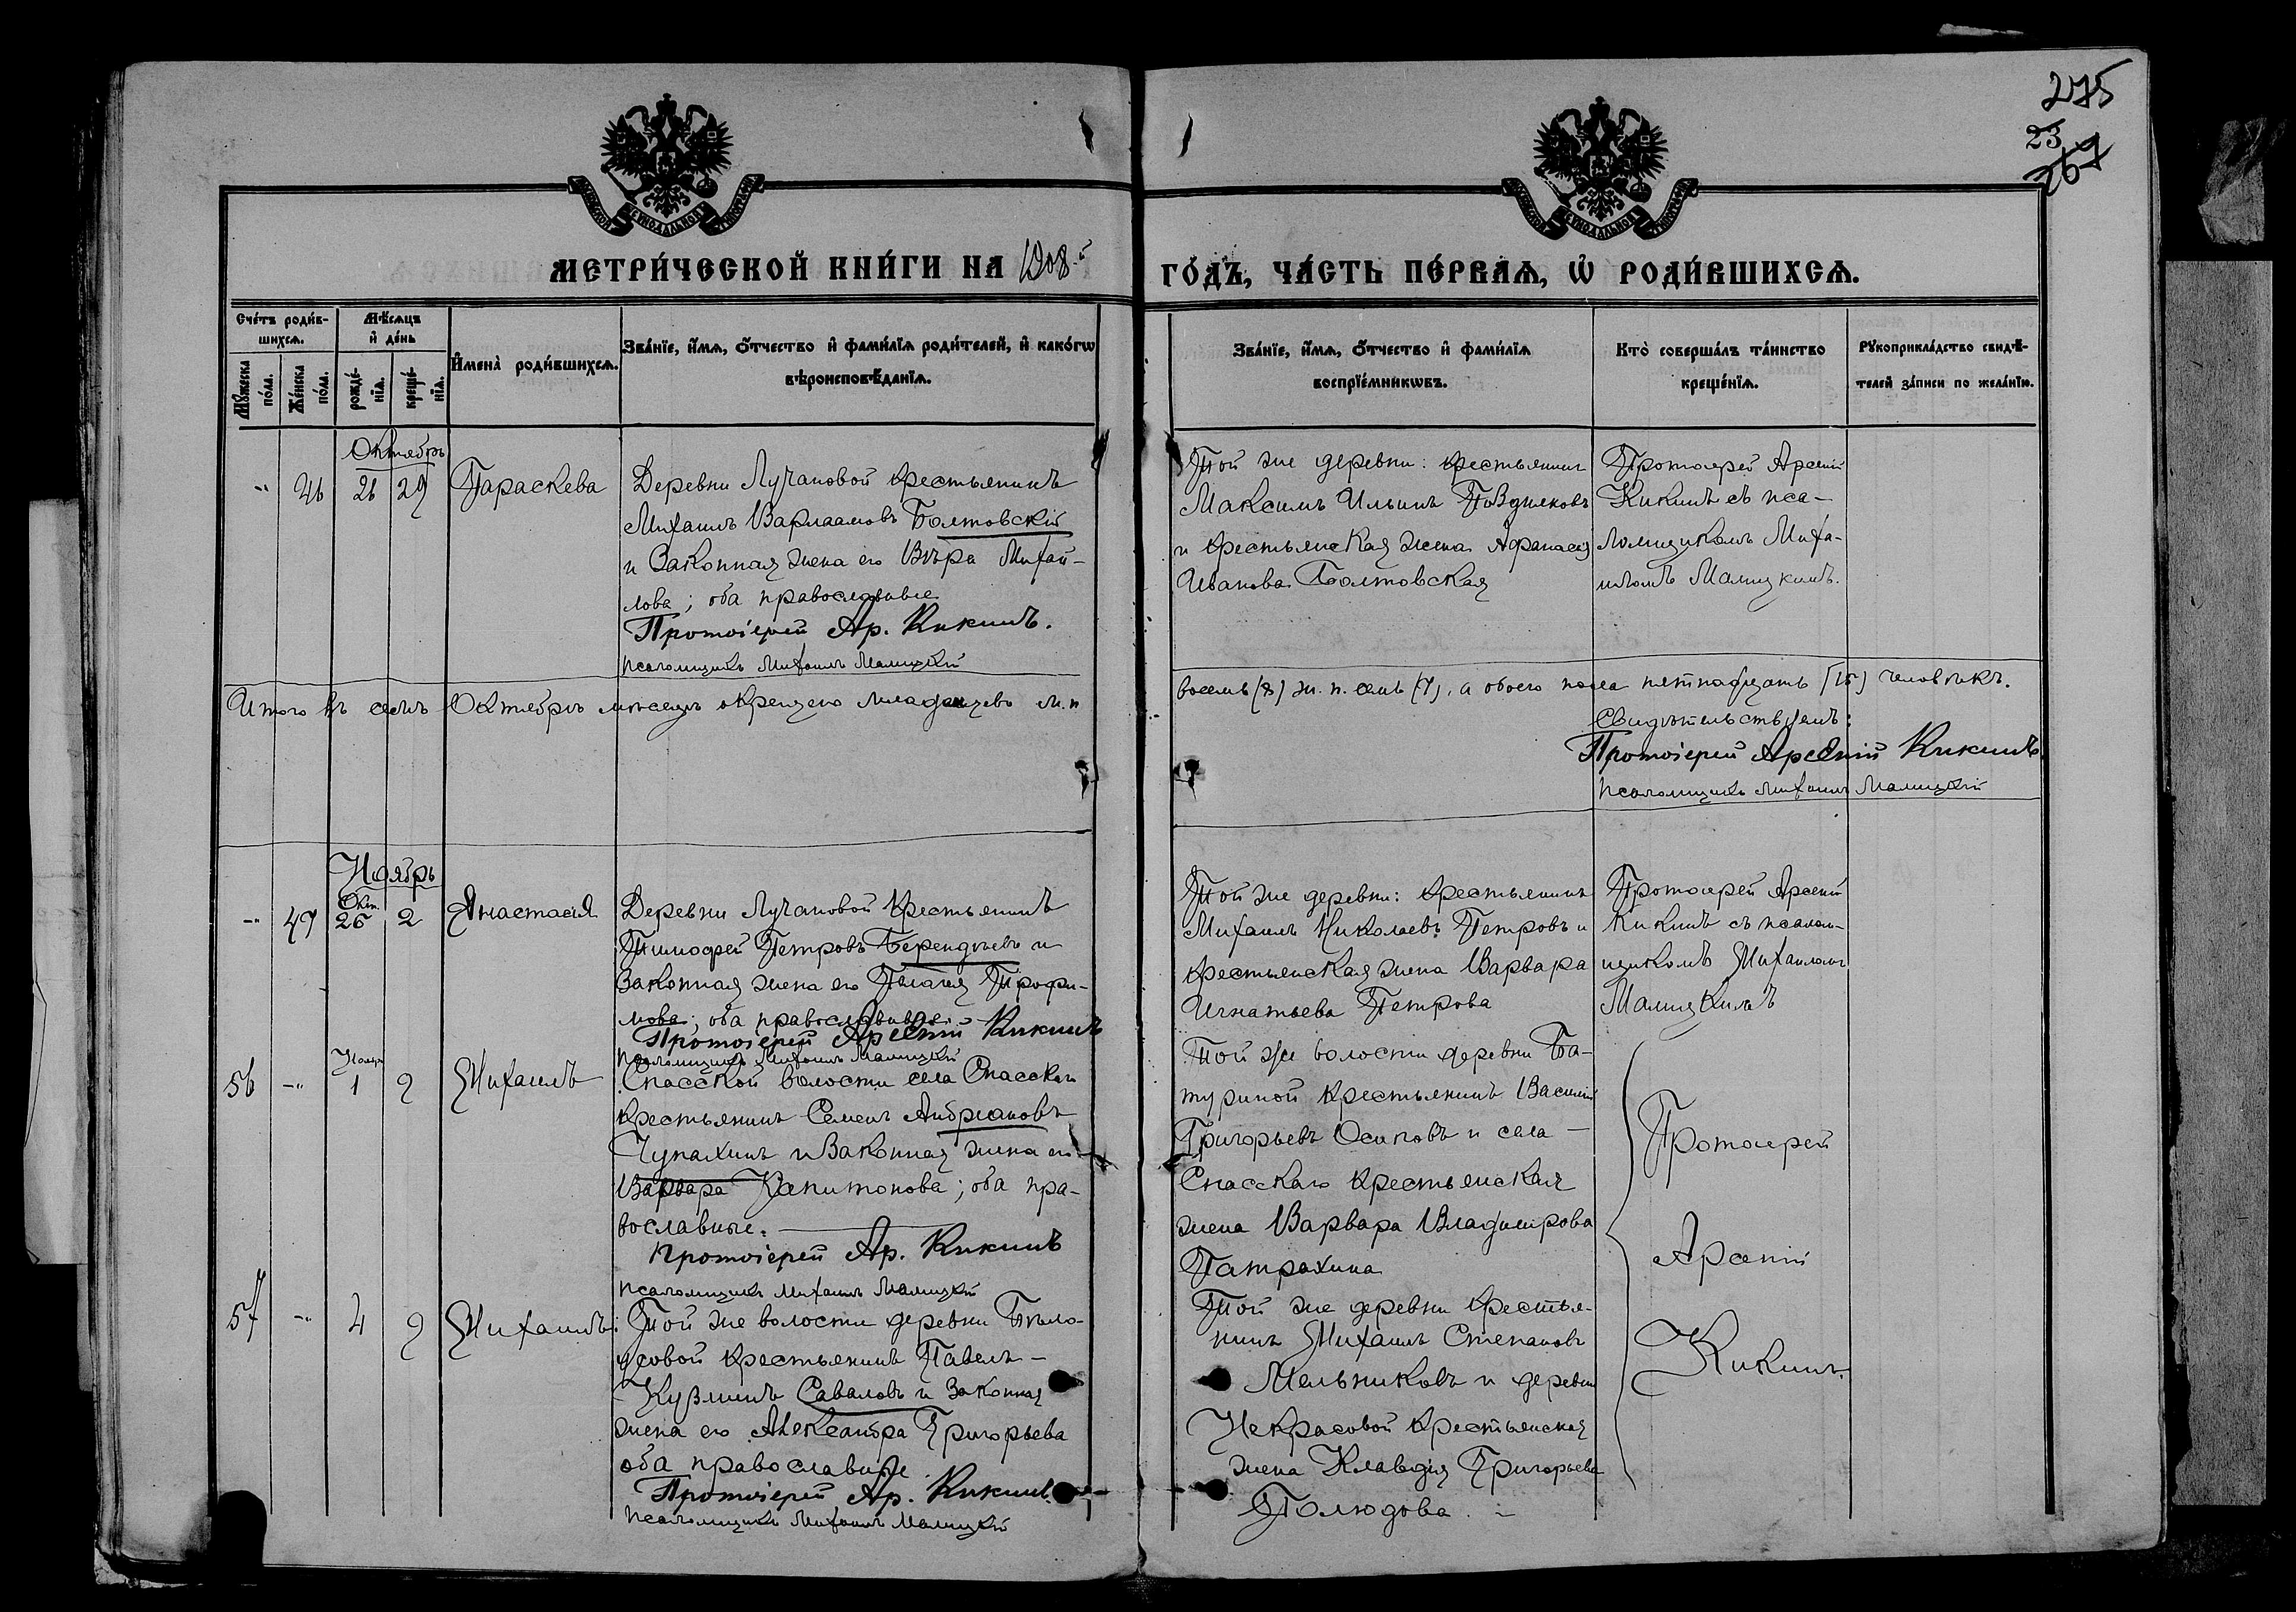 275
23
267
МЕТРИ́ЧЕСКОЙ КНИ́ГИ НА 1908.й
ГО́ДЪ, ЧА́СТЬ ПЕ́РВАѦ, Ѡ҆ РОДИ́ВШИХСѦ.
Сче́тъ роди́в-
шихсѧ.
Мѣ́сѧцъ
и҆ де́нь
Мꙋ́жеска по́ла.
Же́нска по́ла.
рожде́-
нїѧ.
креще́-
нїѧ.
И҆мена̀ роди́вшихсѧ.
Зва́нїе, и҆́мѧ, ѻ҆́тчество и҆ фами́лїѧ роди́телей, и҆ како́гѡ
вѣроисповѣ́данїѧ.
Зва́нїе, и҆́мѧ, ѻ҆́тчество и҆ фами́лїѧ
воспрїе́мникѡвъ.
Кто̀ соверша́лъ та́инство
креще́нїѧ.
Рꙋкоприкла́дство свидѣ́-
телей за́писи по жела́нїю.
Октябрь
-"- 46 26 29 Параскева
Деревни Лучановой крестьянинъ
Михаилъ Варлаамовъ Болтовскій
и законная жена его Вѣра Михай-
лова; оба православные
Протоіерей Ар. Кикинъ.
псаломщикъ Михаилъ Малицкій
Той же деревни: крестьянинъ
Максимъ Ильинъ Поздняковъ
и крестьянская жена Афанасія
Иванова Болтовская
Протоіерей Арсеній
Кикинъ съ пса-
ломщикомъ Миха-
иломъ Малицкимъ.
Итого въ семъ Октябрѣ мѣсяцѣ окрещено младенцевъ м. п
восемь (8) ж. п. семь (7), а обоего пола пятнадцать (15) человѣкъ.
Свидѣтельствуемъ:
Протоіерей Арсеній Кикинъ
псаломщикъ Михаилъ Малицкій
Ноябрь
Окт.
-"- 47 26 2 Анастасія
Деревни Лучановой крестьянинъ
Тимофей Петровъ Берендѣевъ и
законная жена его Пелагія Трофи-
мова; оба православные
Протоіерей Арсеній Кикинъ
псаломщикъ Михаилъ Малицкій
Той же деревни: крестьянинъ
Михаилъ Николаевъ Петровъ и
крестьянская жена Варвара
Игнатьева Петрова
Протоіерей Арсеній
Кикинъ съ псалом-
щикомъ Михаиломъ
Малицкимъ
Ноябр
56 -"- 1 9 Михаилъ
Спасской волости села Спасскаго
крестьянинъ Семенъ Андриановъ
Чупахинъ и законная жена его
Варвара Капитонова; оба пра-
вославные.
Протоіерей Ар. Кикинъ
псаломщикъ Михаилъ Малицкій
Той же волости деревни Ба-
туриной крестьянинъ Василій
Григорьевъ Осиповъ и села
Спасскаго крестьянская
жена Варвара Владимірова
Патрахина
Протоіерей
Арсеній
Кикинъ.
57 -"- 4 9 Михаилъ
Той же волости деревни Бѣло-
усовой крестьянинъ Павелъ
Кузминъ Саваловъ и законная
жена его Александра Григорьева
оба православные
Протоіерей Ар. Кикинъ
псаломщикъ Михаилъ Малицкій
Той же деревни крестья-
нинъ Михаилъ Степановъ
Мельниковъ и деревни
Некрасовой крестьянская
жена Клавдія Григорьева
Полюдова.